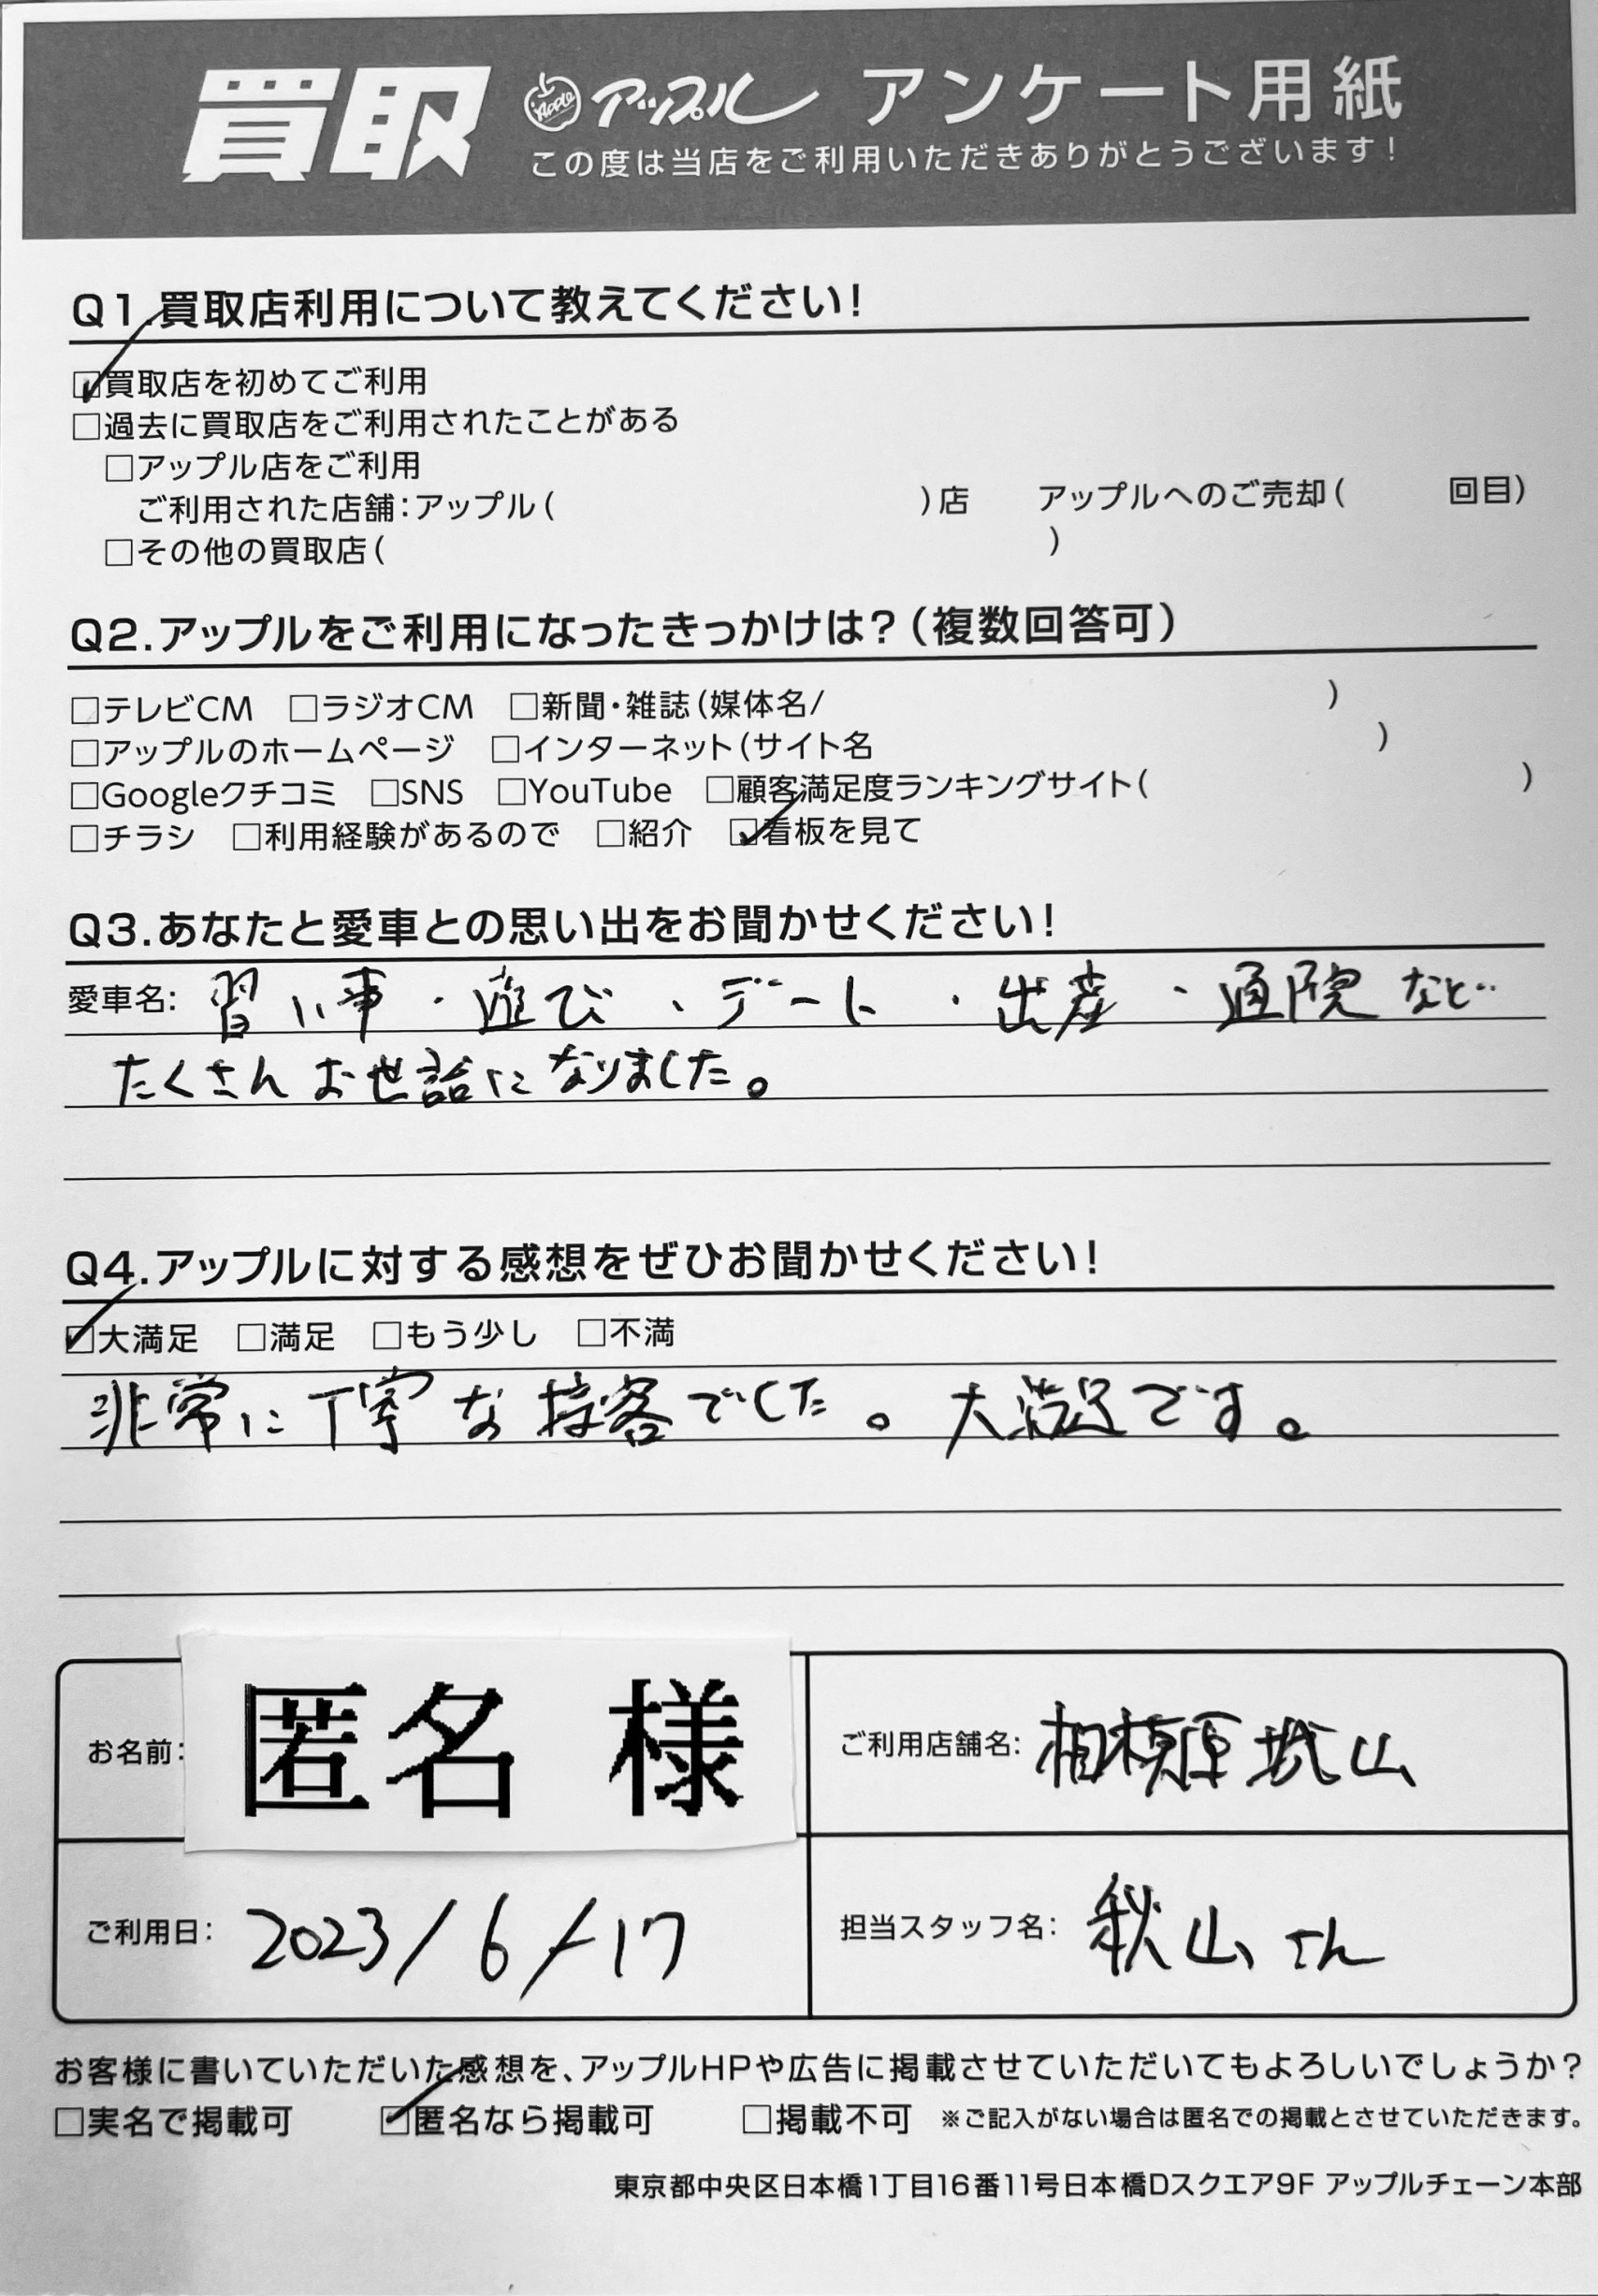 買取 Apple アップル アンケート用紙
この度は当店をご利用いただきありがとうございます!
Q1.買取店利用について教えてください!
☑買取店を初めてご利用
□過去に買取店をご利用されたことがある
□アップル店をご利用
ご利用された店舗:アップル( )店 アップルへのご売却( 回目)
□その他の買取店( )
Q2.アップルをご利用になったきっかけは?(複数回答可)
□テレビCM □ラジオCM □新聞・雑誌(媒体名/ )
□アップルのホームページ □インターネット(サイト名 )
□Googleクチコミ □SNS □YouTube □顧客満足度ランキングサイト( )
□チラシ □利用経験があるので □紹介 ☑看板を見て
Q3.あなたと愛車との思い出をお聞かせください!
愛車名: 習い事・遊び、デート・出産・通院など…
たくさんお世話になりました。
Q4.アップルに対する感想をぜひお聞かせください!
☑大満足 □満足 □もう少し □不満
非常に丁寧な接客でした。大満足です。
お名前: 匿名 様
ご利用店舗名: 相模原城山
ご利用日: 2023/6/17
担当スタッフ名: 秋山さん
お客様に書いていただいた感想を、アップルHPや広告に掲載させていただいてもよろしいでしょうか?
□実名で掲載可 ☑匿名なら掲載可 □掲載不可 ※ご記入がない場合は匿名での掲載とさせていただきます。
東京都中央区日本橋1丁目16番11号日本橋Dスクエア9F アップルチェーン本部